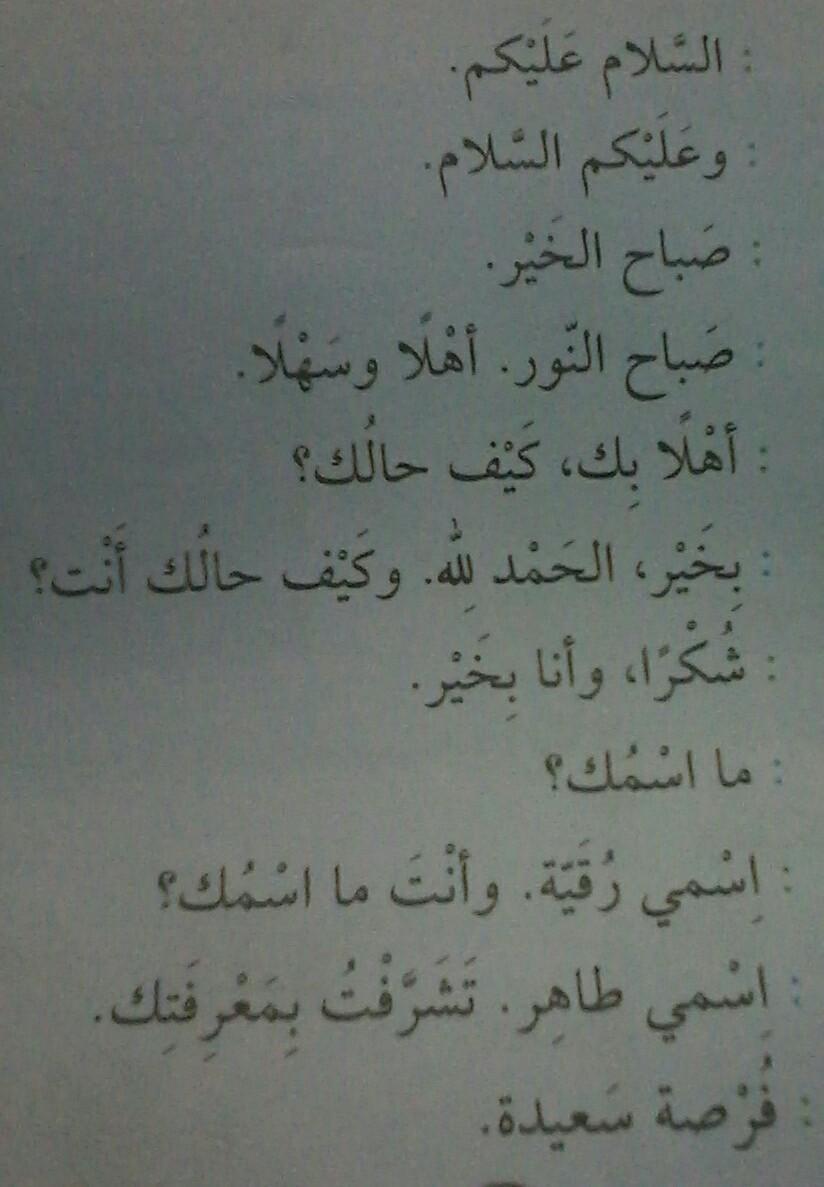 : السَّلام عَلَيْكم.
: وعَلَيْكم السَّلام.
: صَباح الخَيْر.
: صَباح النّور. أهْلًا وسَهْلًا.
: أهْلًا بِك، كَيْف حالُك؟
: بِخَيْر، الحَمْد لِلّٰه. وكَيْف حالُك أَنْت؟
: شُكْرًا، وأنا بِخَيْر.
: ما اسْمُك؟
: اِسْمي رُقَيّة. وأنْتَ ما اسْمُك؟
: اِسْمي طاهِر. تَشَرَّفْتُ بِمَعْرِفَتِك.
: فُرْصة سَعيدة.